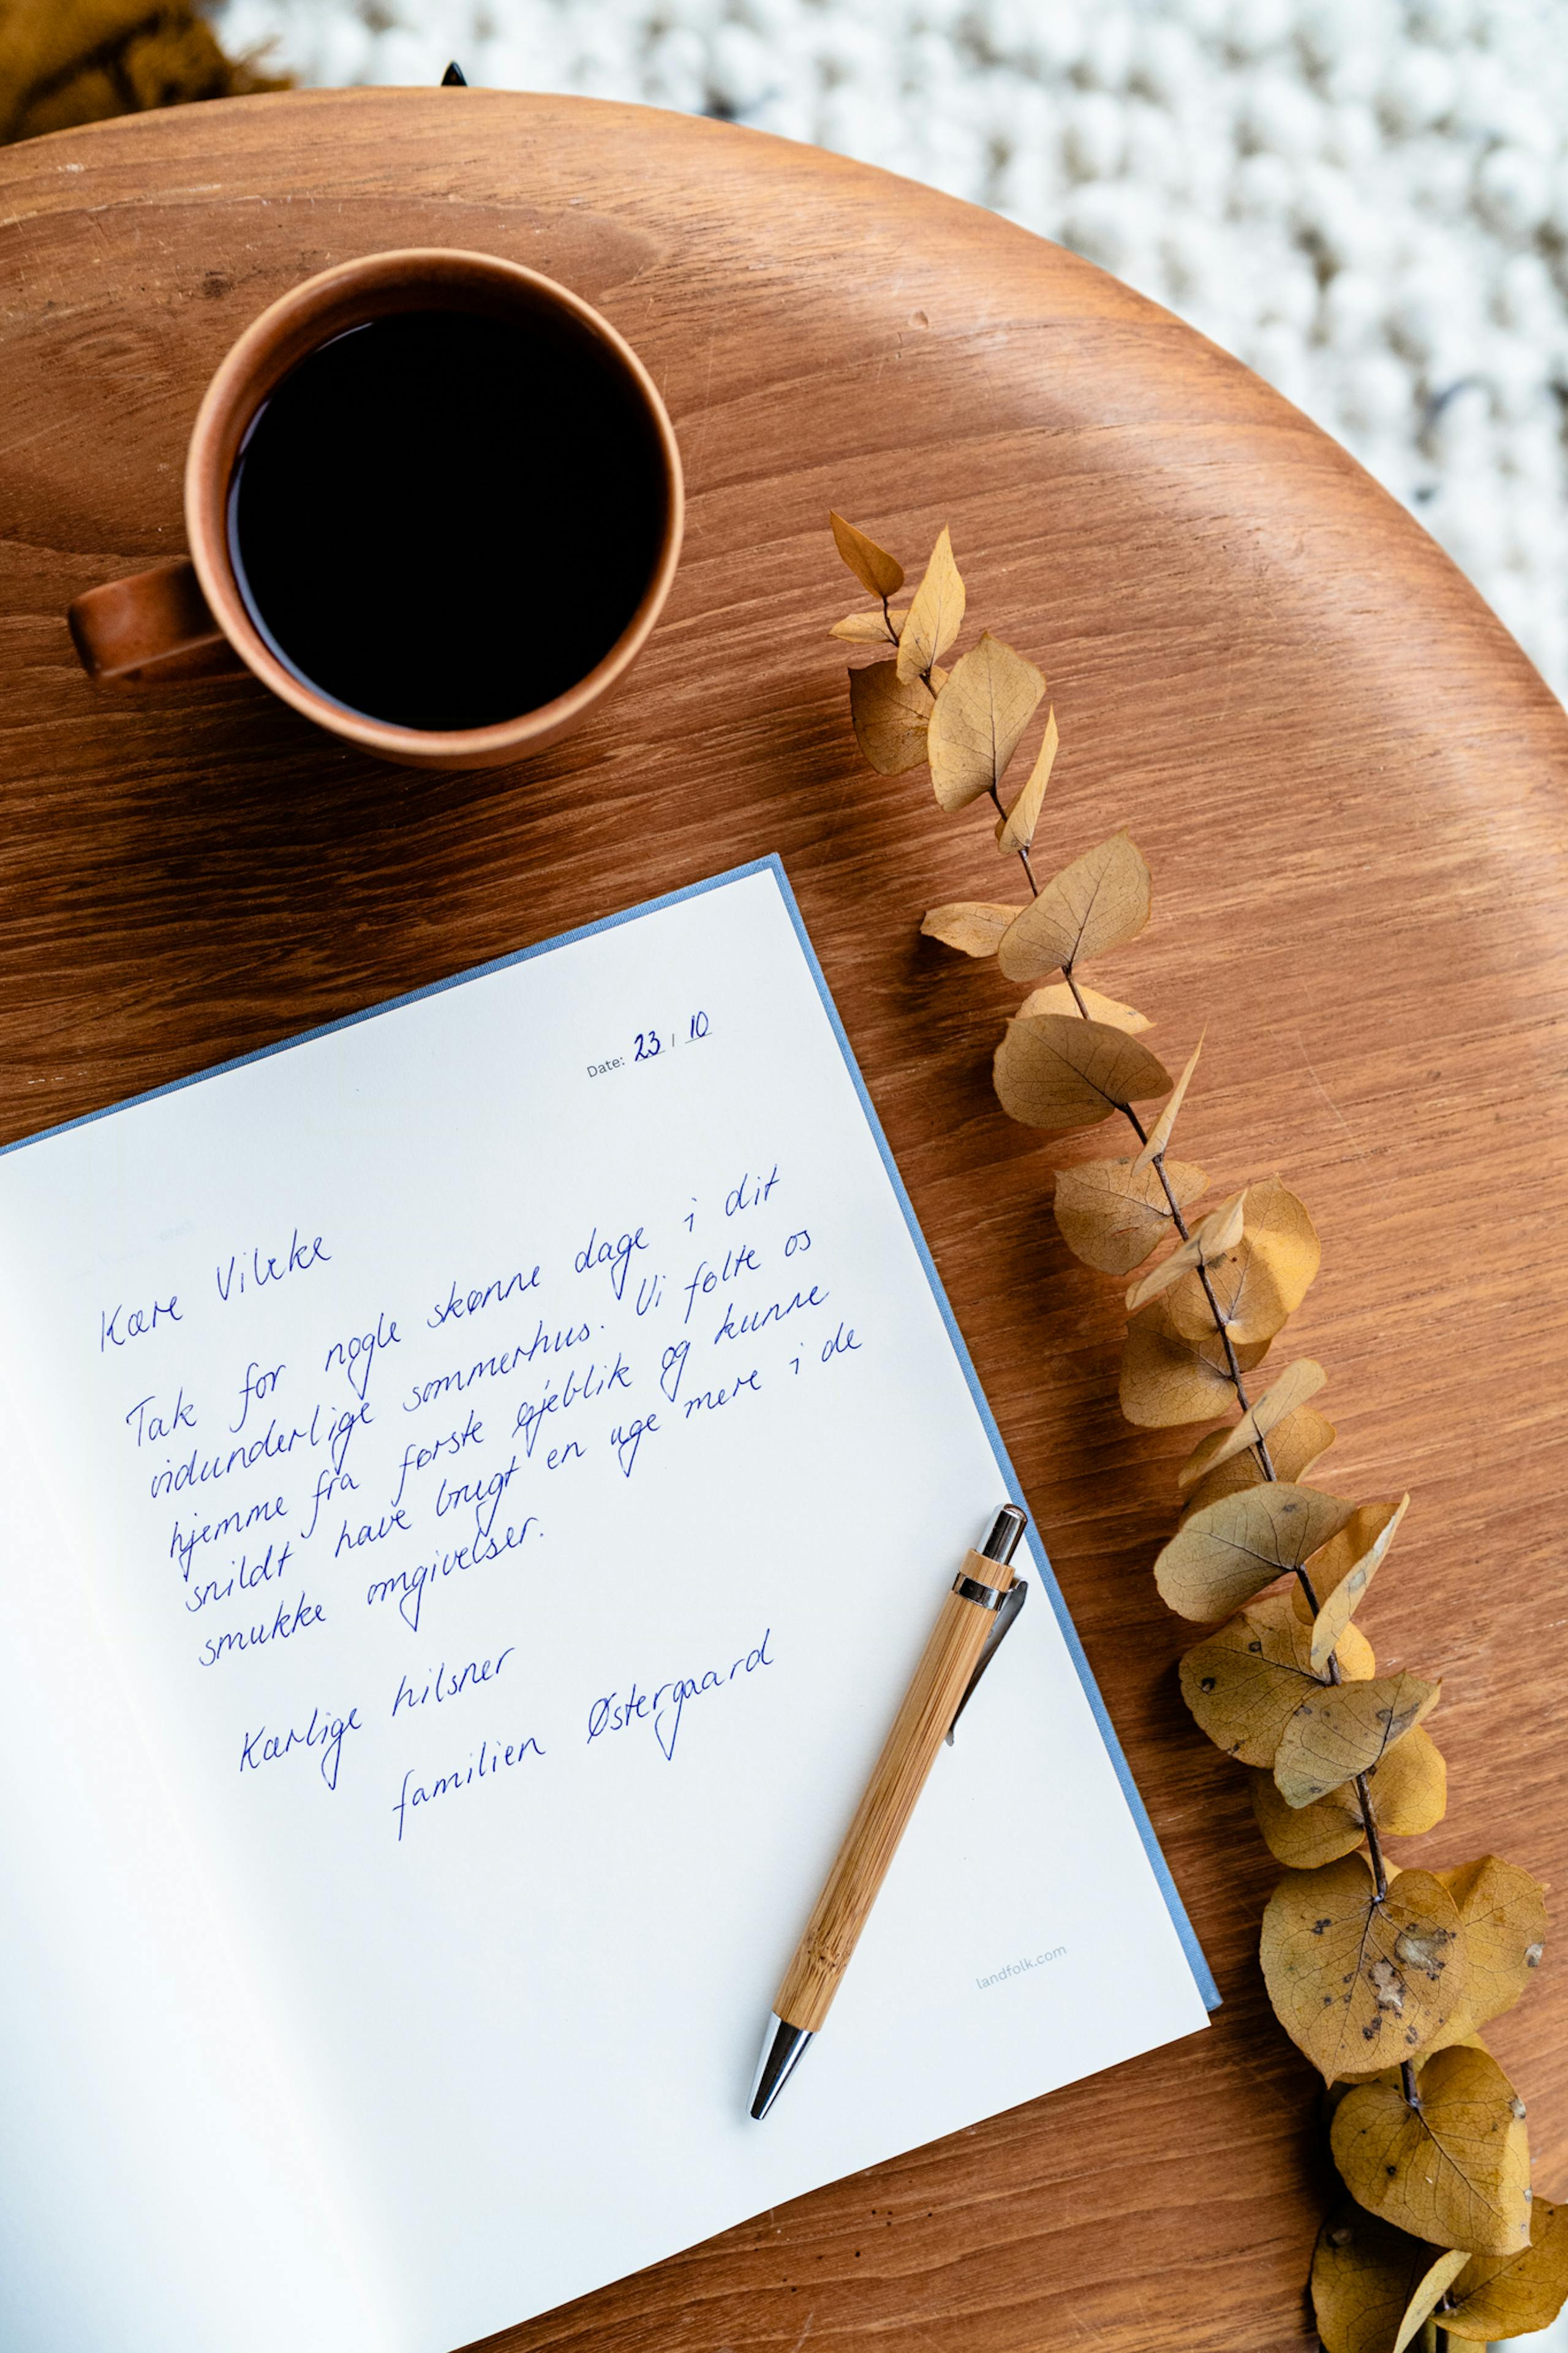 Date: 23 / 10
Kære Vibeke
Tak for nogle skønne dage i dit
vidunderlige sommerhus. Vi følte os
hjemme fra første øjeblik og kunne
snildt have brugt en uge mere i de
smukke omgivelser.
Kærlige hilsner
familien Østergaard
landfolk.com